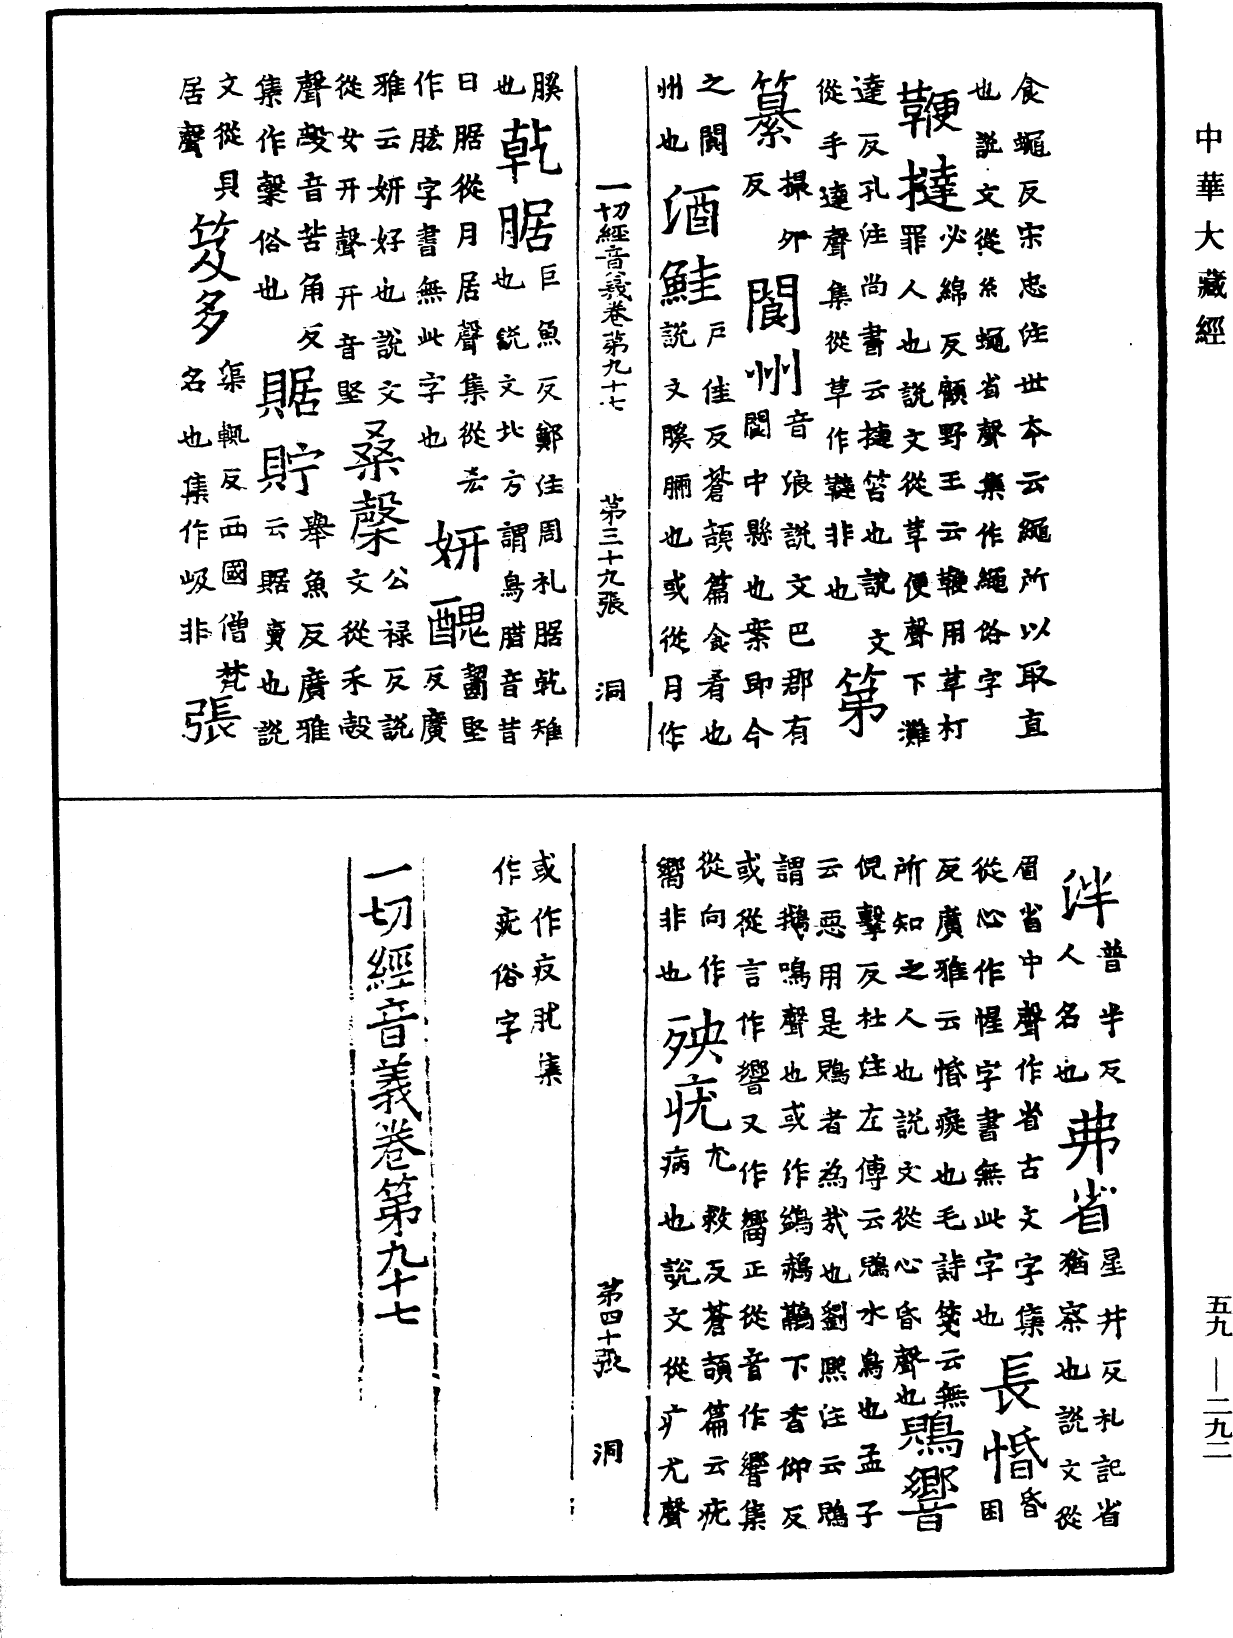 中華大藏經
食蠅反宋忠注世本云繩所以取直
也説文從糸蠅省聲集作繩俗字
鞭撻
必綿反顧野王云鞭用革打
罪人也説文從革便聲下灘
達反孔注尚書云撻笞也説文
從手達聲集從草作韃非也
第
篡
撮夘
反
閬州
音浪説文巴郡有
閬中縣也案即今
之閬
州也
酒鮭
戶佳反蒼頡篇食肴也
説文膎脼也或從月作
一切經音義卷第九十七 第三十九張 洞
膎
也
乾腒
巨魚反鄭注周礼腒乾雉
也説文北方謂鳥腊音昔
曰腒從月居聲集從
作字書無此字也
妍醜
齒堅
反廣
雅云妍好也説文
從女幵聲幵音堅
桑榖
公禄反説
文從禾㱿
聲㱿音苦角反
集作俗也
䝻貯
舉魚反廣雅
云䝻賣也説
文從貝
居聲
笈多
渠輒反西國僧梵
名也集作岋非
張
泮
普半反
人名也
弗省
星井反礼記省
猶察也説文從
眉省中聲作省古文字集
從心作惺字書無此字也
長惛
昏
困
反廣雅云惛癡也毛詩箋云無
所知之人也説文從心昏聲也
鶃響
倪擊反杜注左傳云鶃水鳥也孟子
云惡用是鶃者為哉也劉熙注云鶃
謂鵝鳴聲也或作下香仰反
或從言作響又作嚮正從音作響集
從向作
嚮非也
殃疣
尤救反蒼頡篇云疣
病也説文從疒尤聲
第四十張 洞
或作疫肬集
作疣俗字
一切經音義卷第九十七
五九—二九二